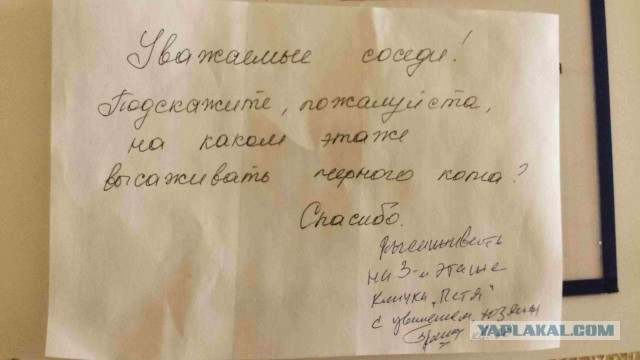 Уважаемые соседи!
Подскажите, пожалуйста,
на каком этаже
высаживать черного кота?
Спасибо.
Высаживать
на 3-м этаже
кличка "Петя"
с уважением хозяин
YAPLAKAL.COM